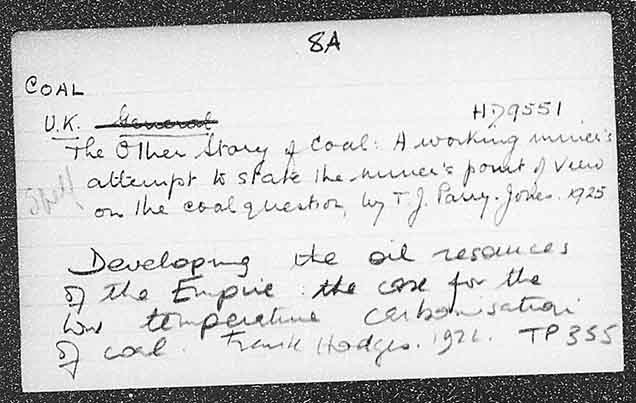 8A
COAL
U.K. General
HD9551
The Other Story of Coal: A working miner's
attempt to state the miner's point of view
Shelf
on the coal question, by T. J. Parry-Jones. 1925
Developing the oil resources
of the Empire: the case for the
low temperature carbonisation
of coal. Frank Hodges. TP 355